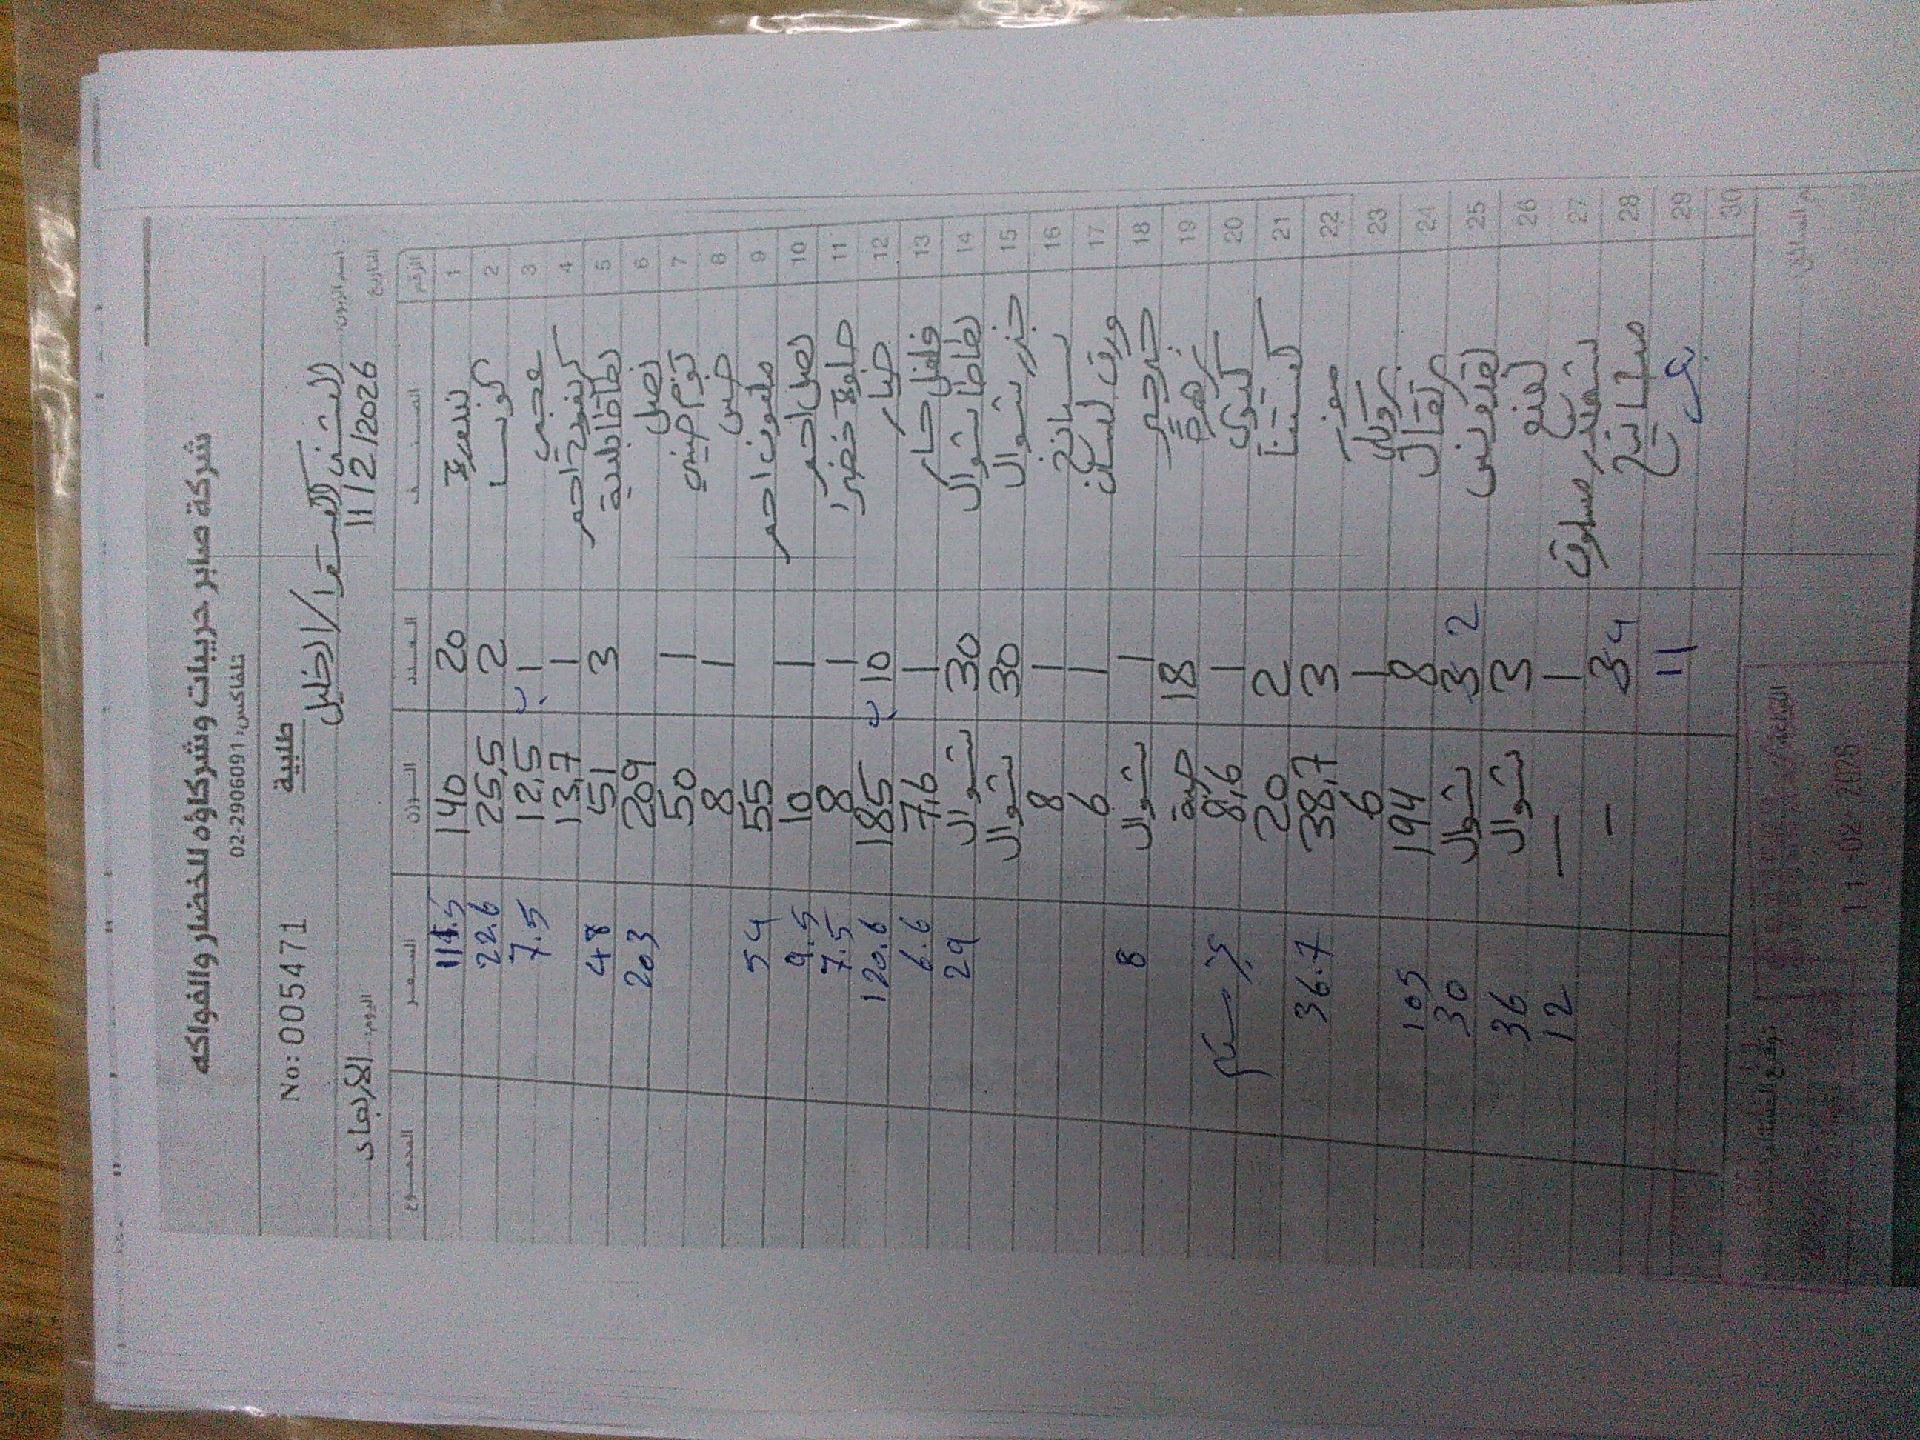 شركة صابر حريبات وشركاؤه للخضار والفواكه
تلفاكس: 02-2906091
No: 005471 طلبية
اليوم: الأربعاء التاريخ 11/2/2026
الرقم الصنف العدد الوزن السعر المجموع
1 بندورة 20 140 111.5
2 كوسا 2 25,5 22.6
3 1 12,5 7.5
4 احمر 1 13,7
5 بطاطا بلدية 3 51 48
6 بصل 209 203
7 ثوم صيني 1 50
8 خس 1 8
9 ملفوف احمر 55 54
10 بصل احمر 1 10 9.5
11 خضرا 1 8 7.5
12 خيار 10 185 120.6
13 فلفل حار 1 7,6 6.6
14 بطاطا شوال 30 شوال 29
15 جزر شوال 30 شوال
16 سبانخ 1 8
17 ورق لسان 1 6
18 جرجير 1 شوال 8
19 زهرة 18 حبة
20 كيوي 1 8,6
21 كستنا 2 20
22 موز 3 38,7 36.7
23 1 6
24 برتقال 8 194 105
25 بقدونس 3 2 شوال 30
26 نعنع 3 شوال 36
27 شمندر مسلوق 1 — 12
28 34 -
29 11
30
توقيع المستلم
11-02-2026